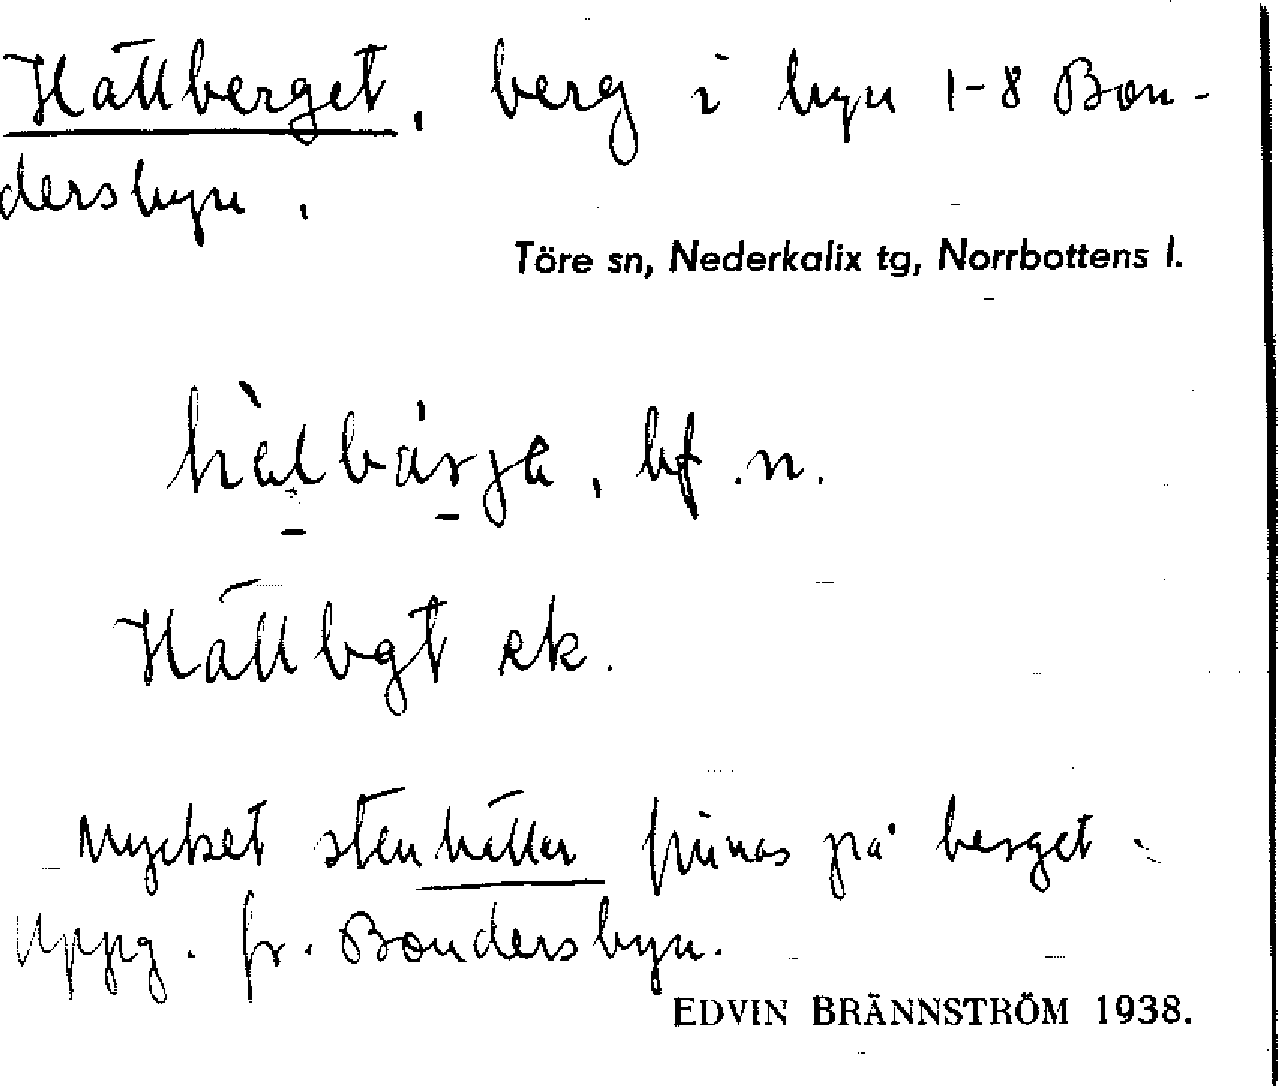 Hällberget, berg i byn 1-8 Bon-
dersbyn.
Töre sn, Nederkalix tg, Norrbottens l.
bf. n.
Hällbgt ek.
Mycket stenhällar finnas på berget.
Uppg. fr. Bondersbyn.
EDVIN BRÄNNSTRÖM 1938.